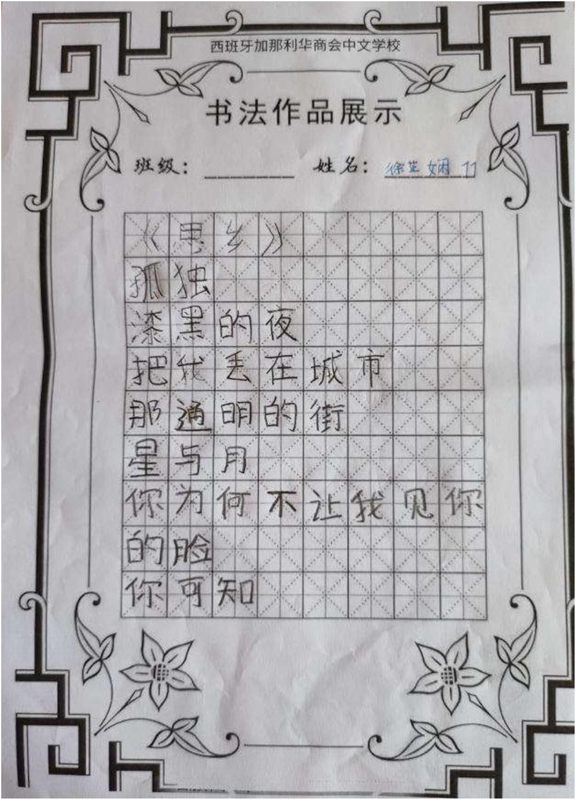 西班牙加那利华商会中文学校
书法作品展示
班级： 姓名： 徐芷娴 11
《思乡》
孤独
漆黑的夜
把我丢在城市
那通明的街
星与月
你为何不让我见你
的脸
你可知